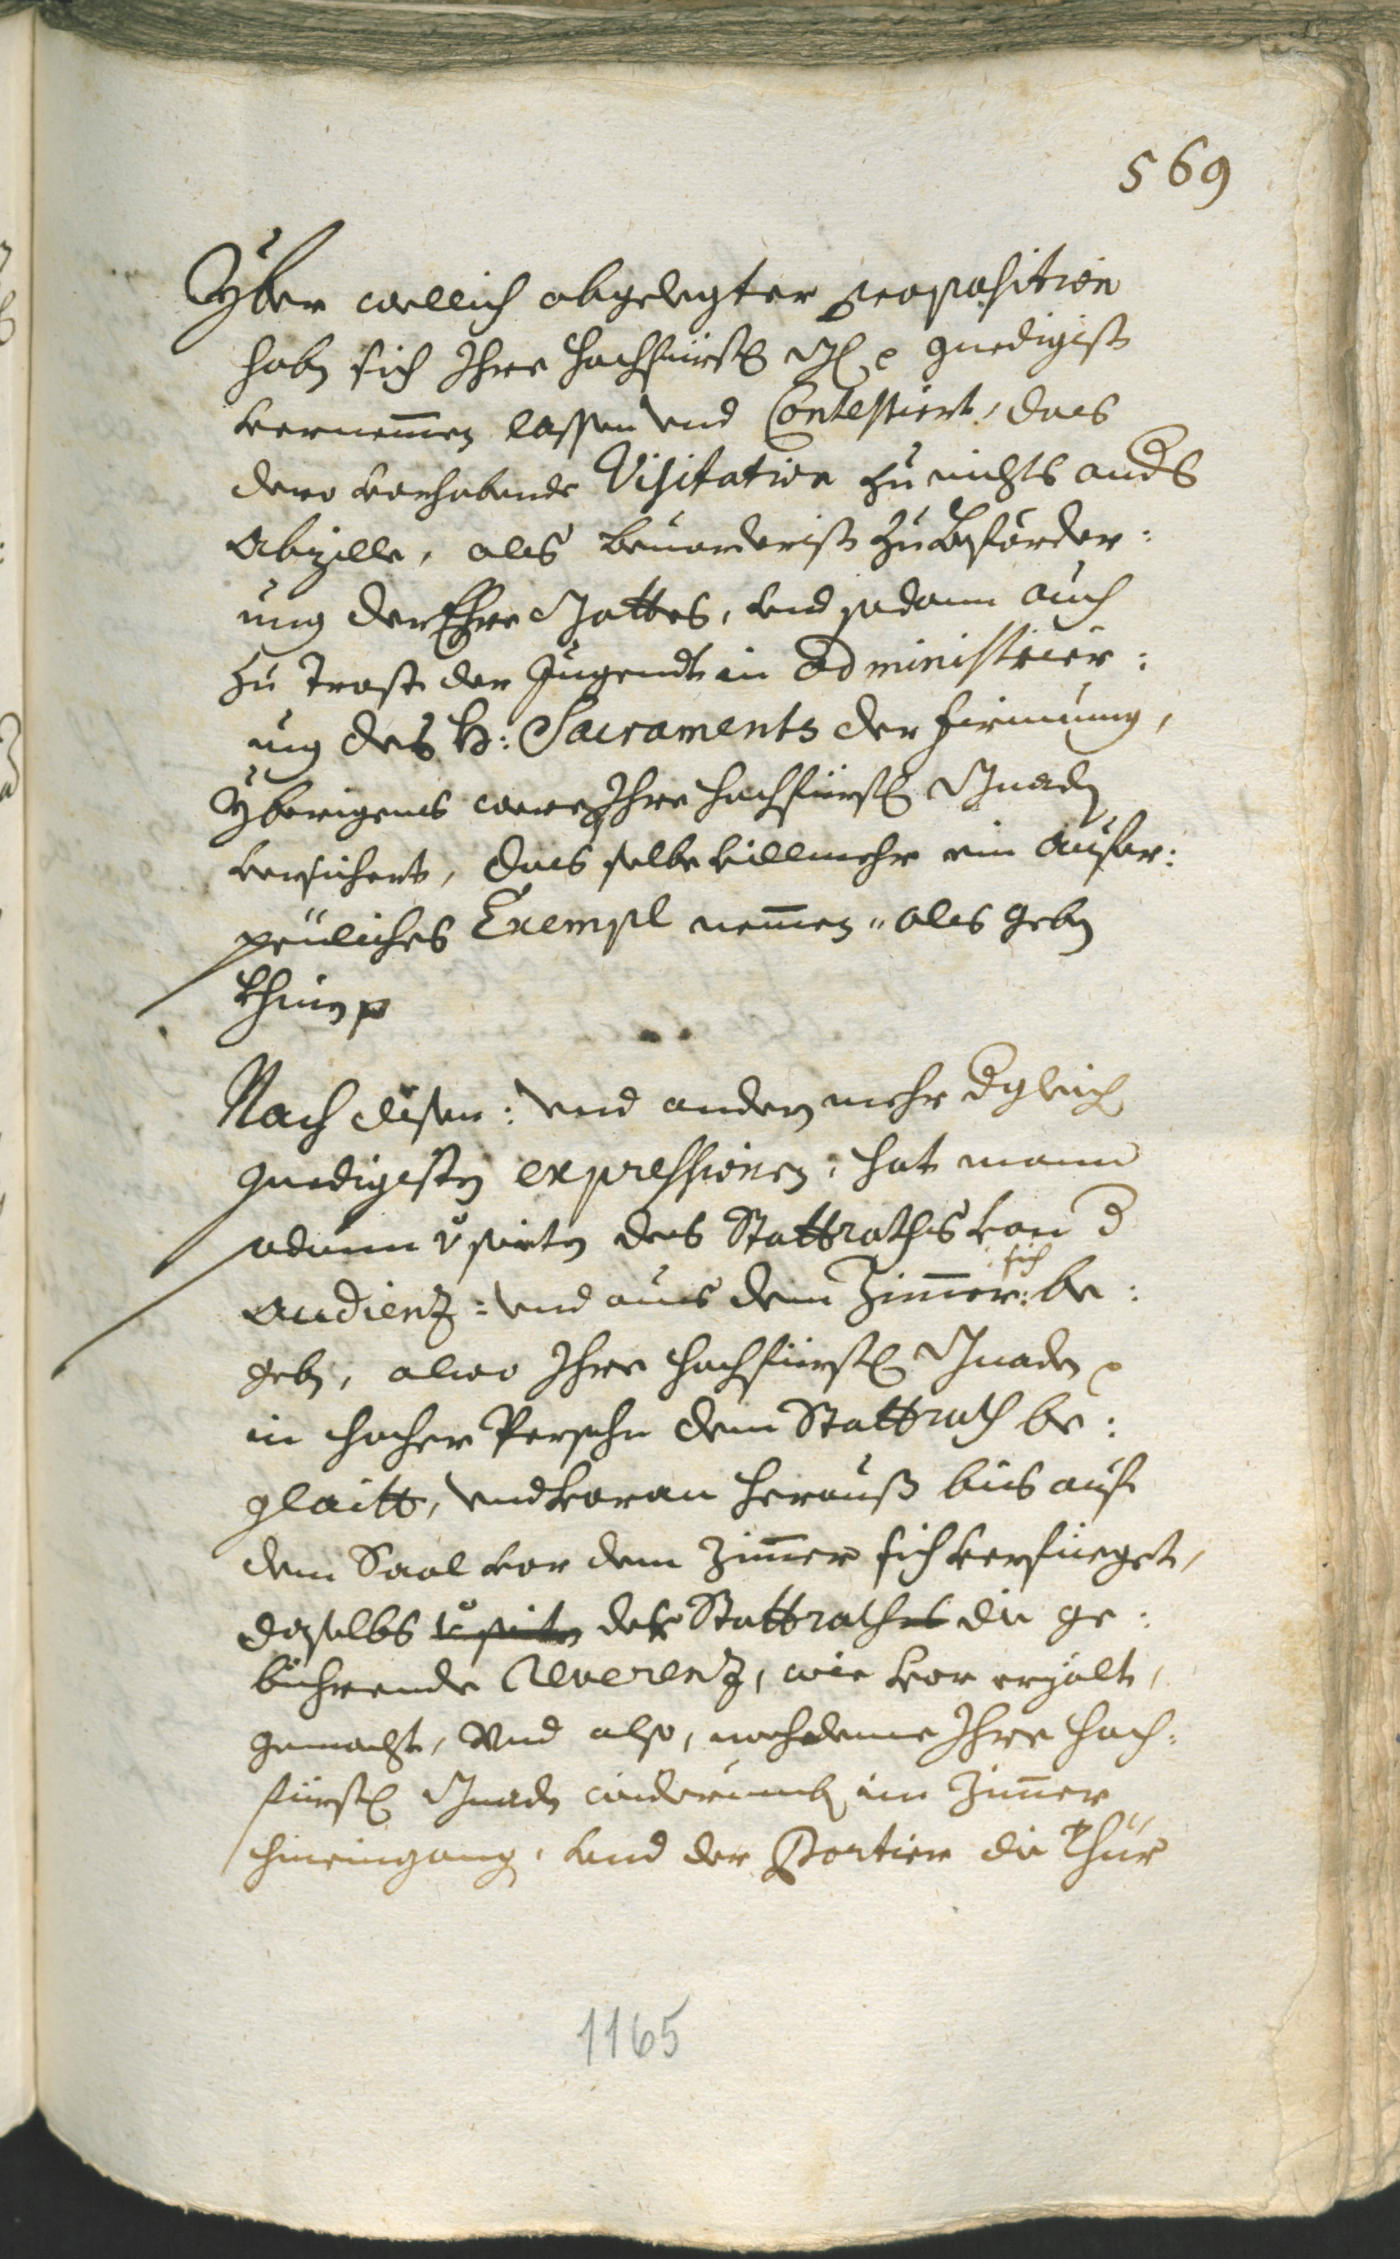 569
Yber wellich abgelegter proposition
haben sich Ihre Hochfürstl. Gn. gnedigist
vernemmen lassen und Contestiert, das
dero vorhabende Visitation zu nichts anders
Abzille, als bevorderist zu Beförder:
ung der Ehre Gottes, und sodann auch
zu Trost der Jugendt in Administrier:
ung des H: Sacraments der Firmung,
Yberigens weren Ihre Hochfürstl. Gnaden
versichert, das selbe villmehr ein aufer:
peuliches Exempl nemmen, als geben
khünen
Nach disen: und andern mehr dergleich
gnedigisten expressionen, hat mann
odann seiten des Stattraths von der
Audienz: und aus dem Zimmer: sich be:
geben, alwo Ihre Hochfürstl. Gnaden
in hocher Persohn dem Stattrath be:
glaitt, und voran herauß bis auf
dem Saal vor dem Zimmer sich verfüeget,
daselbs seiten der Stattraths die ge:
bührende Reverenz, wie vor erzolt,
gemacht, Und also, nachdeme Ihre Hoch:
fürstl. Gnaden widerumb im Zimmer
hineingang, und der Portier die Thür
1165